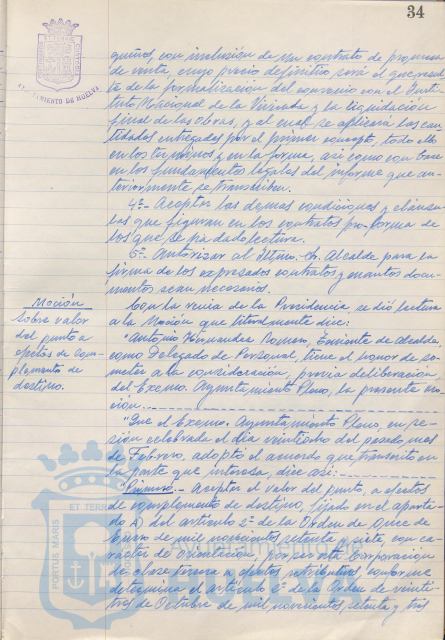 34
AYUNTAMIENTO DE HUELVA
queños, con inclusión de un contrato de promesa
de venta, cuyo precio definitivo será el que resul
te de la formalización del convenio con el Insti
tuto Nacional de la Vivienda y la liquidación
final de las obras, y al cual se aplicará las can
tidades entregadas por el primer concepto, todo ello
en los términos y en la forma, así como con base
en los fundamentos legales del informe que an-
teriormente se transcriben.
4º.- Aceptar las demás condiciones y cláusu-
las que figuran en los contratos pro-forma de
los que se ha dado lectura.
5º.- Autorizar al Iltmo. Sr. Alcalde para la
firma de los expresados contratos y cuantos docu-
mentos sean necesarios.
Moción
sobre valor
del punto a
efectos de com-
plemento de
destino.
Con la venia de la Presidencia, se dió lectura
a la Moción que literalmente dice:
"Antonio Hernández Romero, Teniente de Alcalde,
como Delegado de Personal, tiene el honor de so-
meter a la consideración, previa deliberación
del Excmo. Ayuntamiento Pleno, la presente mo-
ción.
"Que el Excmo. Ayuntamiento Pleno, en se-
sión celebrada el día veintiocho del pasado mes
de Febrero, adoptó el acuerdo que transcrito en
la parte que interesa, dice así:
"Primero.- Aceptar el valor del punto, a efectos
de complemento de destino, fijado en el aparta-
do A) del artículo 2º de la Orden de Once de
Enero de mil novecientos setenta y siete, con ca-
rácter de orientación, por ser esta Corporación
de clase tercera a efectos retributivos, conforme
determina el artículo 2º de la Orden de veinti-
trés de Octubre de mil novecientos setenta y tres
ET TERR
PORTUS MARIS
HUELVA